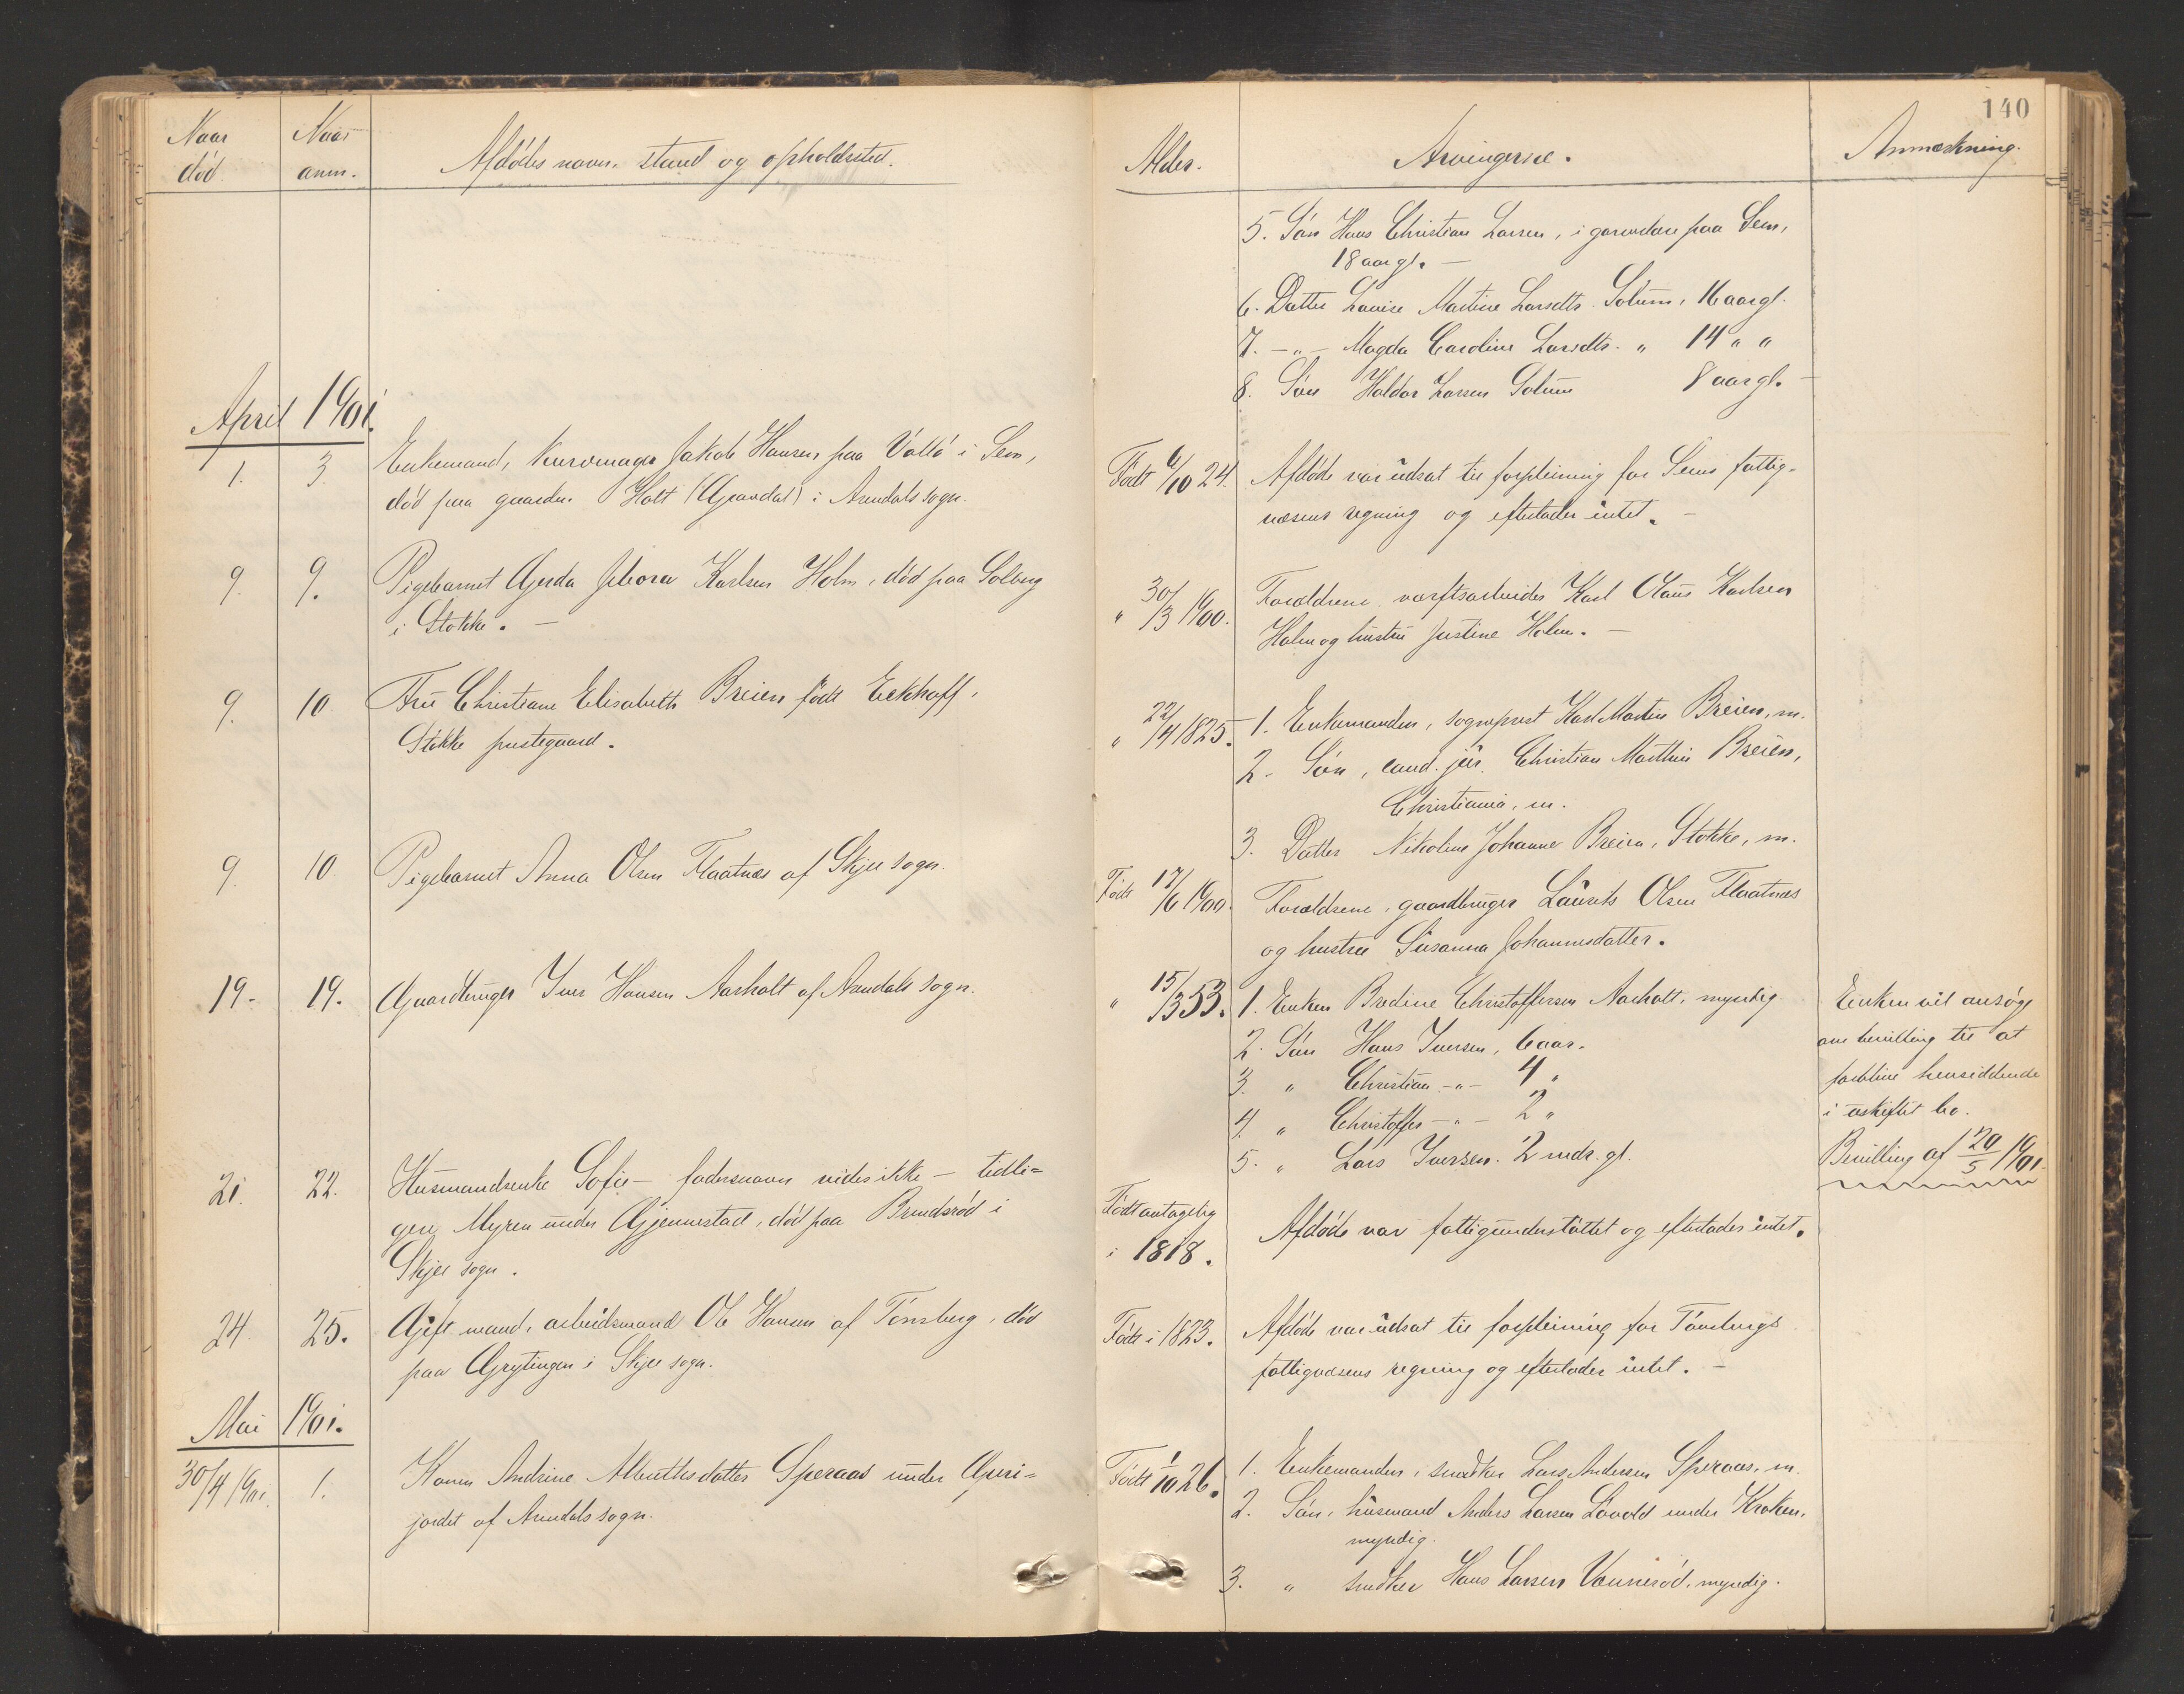 140
Naar død.
Naar anm.
Afdødes navn, stand og opholdssted.
Alder.
Arvingerne.
Anmærkning.
5. Søn Hans Christian Larsen, i garvelære paa Sem,
18 aar gl. —
6. Datter Lovise Martine Larsdtr. Solum, 16 aar gl.
7. -"- Magda Caroline Larsdtr. " 14 " "
8. Søn Haldor Larsen Solum 8 aar gl. —
April 1901.
1. 3. Enkemand, kurvmager Jakob Hansen paa Vallø i Sem,
død paa gaarden Holt (Gravdal) i Arendals sogn.
Født 6/10 24.
Afdøde var udsat til forpleining for Sems fattig-
væsens regning og efterlader intet. —
9. 9. Pigebarnet Gerda Febora Karlsen Holm, død paa Solberg
i Stokke. —
" 30/3 1900.
Forældrene værftsarbeider Karl Olaus Karlsen
Holm og hustru Justine Holm. —
9. 10. Fru Christiane Elisabeth Breien født Eckhoff,
Stokke prestegaard.
" 22/4 1825.
1. Enkemanden, sogneprest Karl Martin Breien, m.
2. Søn, cand. jur. Christian Martin Breien,
Christiania, m.
3. Datter Nikoline Johanne Breien, Stokke, m.
9. 10. Pigebarnet Anna Olsen Flaatnæs af Skjee sogn.
Født 17/6 1900.
Forældrene, gaardbruger Laurits Olsen Flaatnæs
og hustru Susanna Johannesdatter.
19. 19. Gaardbruger Iver Hansen Aasholt af Arendals sogn.
" 15/3 53.
1. Enken Bredine Christoffersen Aasholt, myndig.
2. Søn Hans Iversen, 6 aar.
3. " Christian -"- 4 "
4. " Christoffer -"- 2 "
5. " Lars Iversen. 2 mdr. gl.
Enken vil ansøge
om bevilling til at
forblive hensiddende
i uskiftet bo.
Bevilling af 20/5 1901.
21. 22. Husmandsenke Sofie — fadersnavn vides ikke — tidli-
gere Myren under Gjennestad, død paa Brundsrød i
Skjee sogn.
Født antagelig
i 1818.
Afdøde var fattigunderstøttet og efterlader intet.
24. 25. Gift mand, arbeidsmand Ole Hansen af Tønsberg, død
paa Grytingen i Skjee sogn.
Født i 1823.
Afdøde var udsat til forpleining for Tønsbergs
fattigvæsens regning og efterlader intet. —
Mai 1901.
30/4 1901. 1. Konen Andrine Alberthsdatter Speraas under
jordet af Arendals sogn.
Født 1/10 26.
1. Enkemanden, snedker Lars Andersen Speraas, m.
2. Søn, husmand Anders Larsen Løvold under Kroken,
myndig.
3. " snedker Hans Larsen Vennerød, myndig.